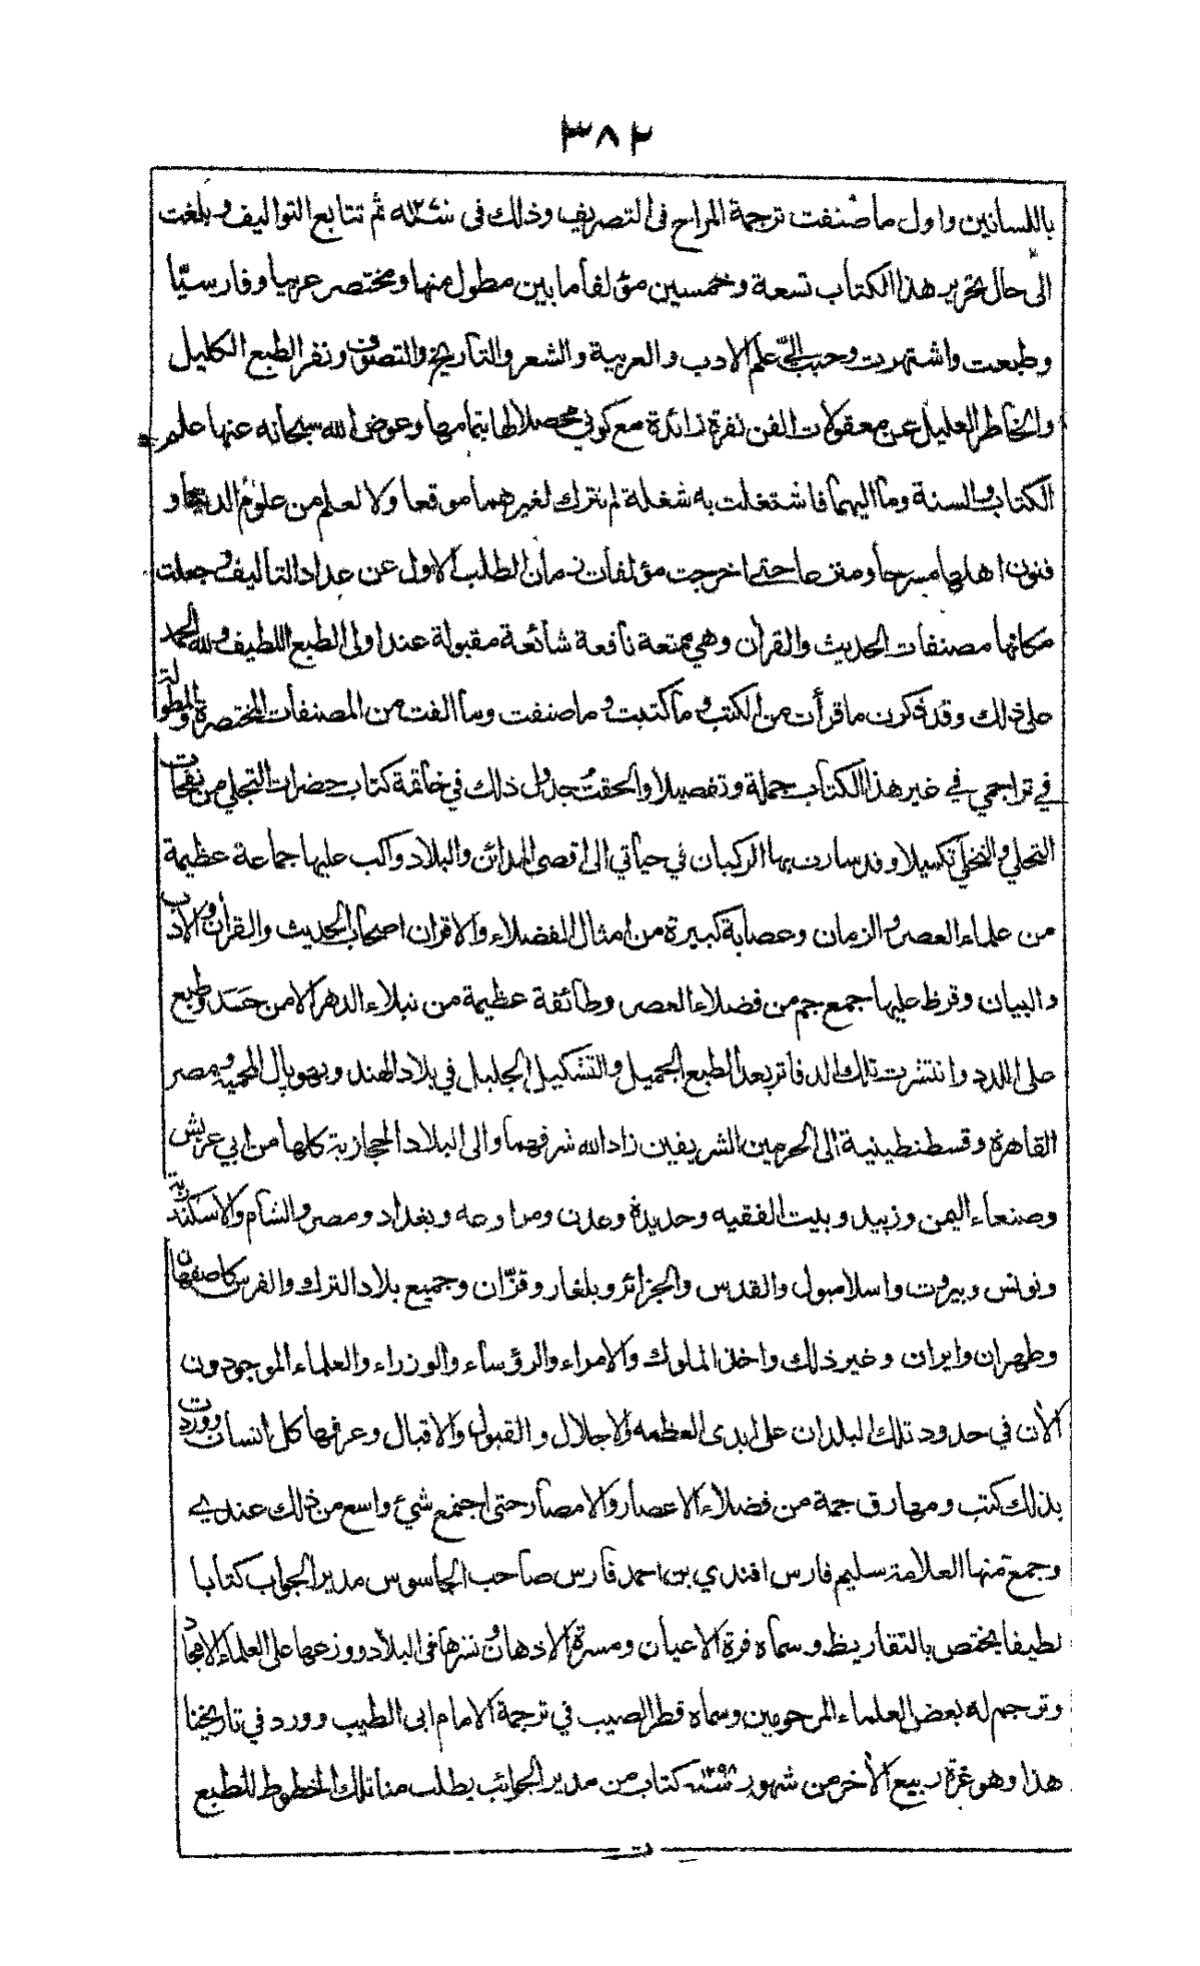 ٣٨٢
باللسانين واول ما صُنفت ترجمة المراح فى التصريف وذلك فى سنة ثم تتابع التواليف وبلغت
الى حال تحرير هذا الكتاب تسعة وخمسين مؤلفا ما بين مطول منها ومختصر عربيا وفارسيّا
وطبعت واشتهرت وحبب الىّ علم الادب والعربية والشعر والتأريخ والتصوف ونفر الطبع الكليل
والخاطر العليل عن معقولات الفن نفرة زائدة مع كونى محصلا لها بتمامها وعوض الله سبحانه عنها علم
الكتاب والسنة وما اليهما فاشتغلت به شغلة لم تترك لغيرهما موقعا ولا لعلم من علوم الدنيا و
فنون اهلها مسرحا ومنزحا حتى اخرجت مؤلفات زمان الطلب الاول عن عداد التأليف وجعلت
مكانها مصنفات الحديث والقرآن وهي ممتعة نافعة شائعة مقبولة عند اولى الطبع اللطيف ولله الحمد
على ذلك وقد ذكرت ما قرأت من الكتب وما كتبت وما صنفت وما الفت من المصنفات المختصرة والمطولة
في تراجمي في غير هذا الكتاب جملة وتفصيلا والحقتُ جدول ذلك في خاتمة كتاب حضرات التجلي من نفحات
التحلي والتخلي تكميلا وقد سارت بها الركبان في حياتي الى اقصى المدائن والبلاد وآكب عليها جماعة عظيمة
من علماء العصر والزمان وعصابة كبيرة من امثال الفضلاء والاقران اصحاب الحديث والقرأن والادب
والبيان وقرظ عليها جمع جم من فضلاء العصر وطائفة عظيمة من نبلاء الدهر الا من حسَد وطبع
على اللدد وانتشرت تلك الدفاتر بعد الطبع الجميل والتشكيل الجليل في بلاد الهند وبهوپال المحمية ومصر
القاهرة وقسطنطينية الى الحرمين الشريفين زاد الله شرفهما والى البلاد الحجازية كلها من ابي عريش
وصنعاء اليمن وزبيد وبيت الفقيه وحديدة وعدن ومراوعه وبغداد ومصر والشام والاسكندرية
وتونس وبيروت واسلامبول والقدس والجزائر وبلغار وقزّان وجميع بلاد الترك والفرس كاصفهان
وطهران وايران وغير ذلك واخذ الملوك والامراء والرؤساء والوزراء والعلماء الموجودون
الأن في حدود تلك البلدان على ايدى العظمه والاجلال والقبول والاقبال وعرفها كل انسان ووردت
بذلك كتب ومهارق جمة من فضلاء الاعصار والامصار حتى اجتمع شيء واسع من ذلك عندي
وجمع منها العلامة سليم فارس افندي بن احمد فارس صاحب الجاسوس مدير الجواب كتابا
لطيفا يختص بالتقاريظ وسماه قرة الاعيان ومسرة الاذهان ونشرها فى البلاد ووزعها على العلماء الامجاد
وترجم له بعض العلماء المرحومين وسماه قطر الصيب في ترجمة الامام ابى الطيب وورد في تاريخنا
هذا وهو غرة ربيع الأخر من شهور سنة ١٢٩٨ كتاب من مدير الجوائب يطلب منا تلك الخطوط للطبع